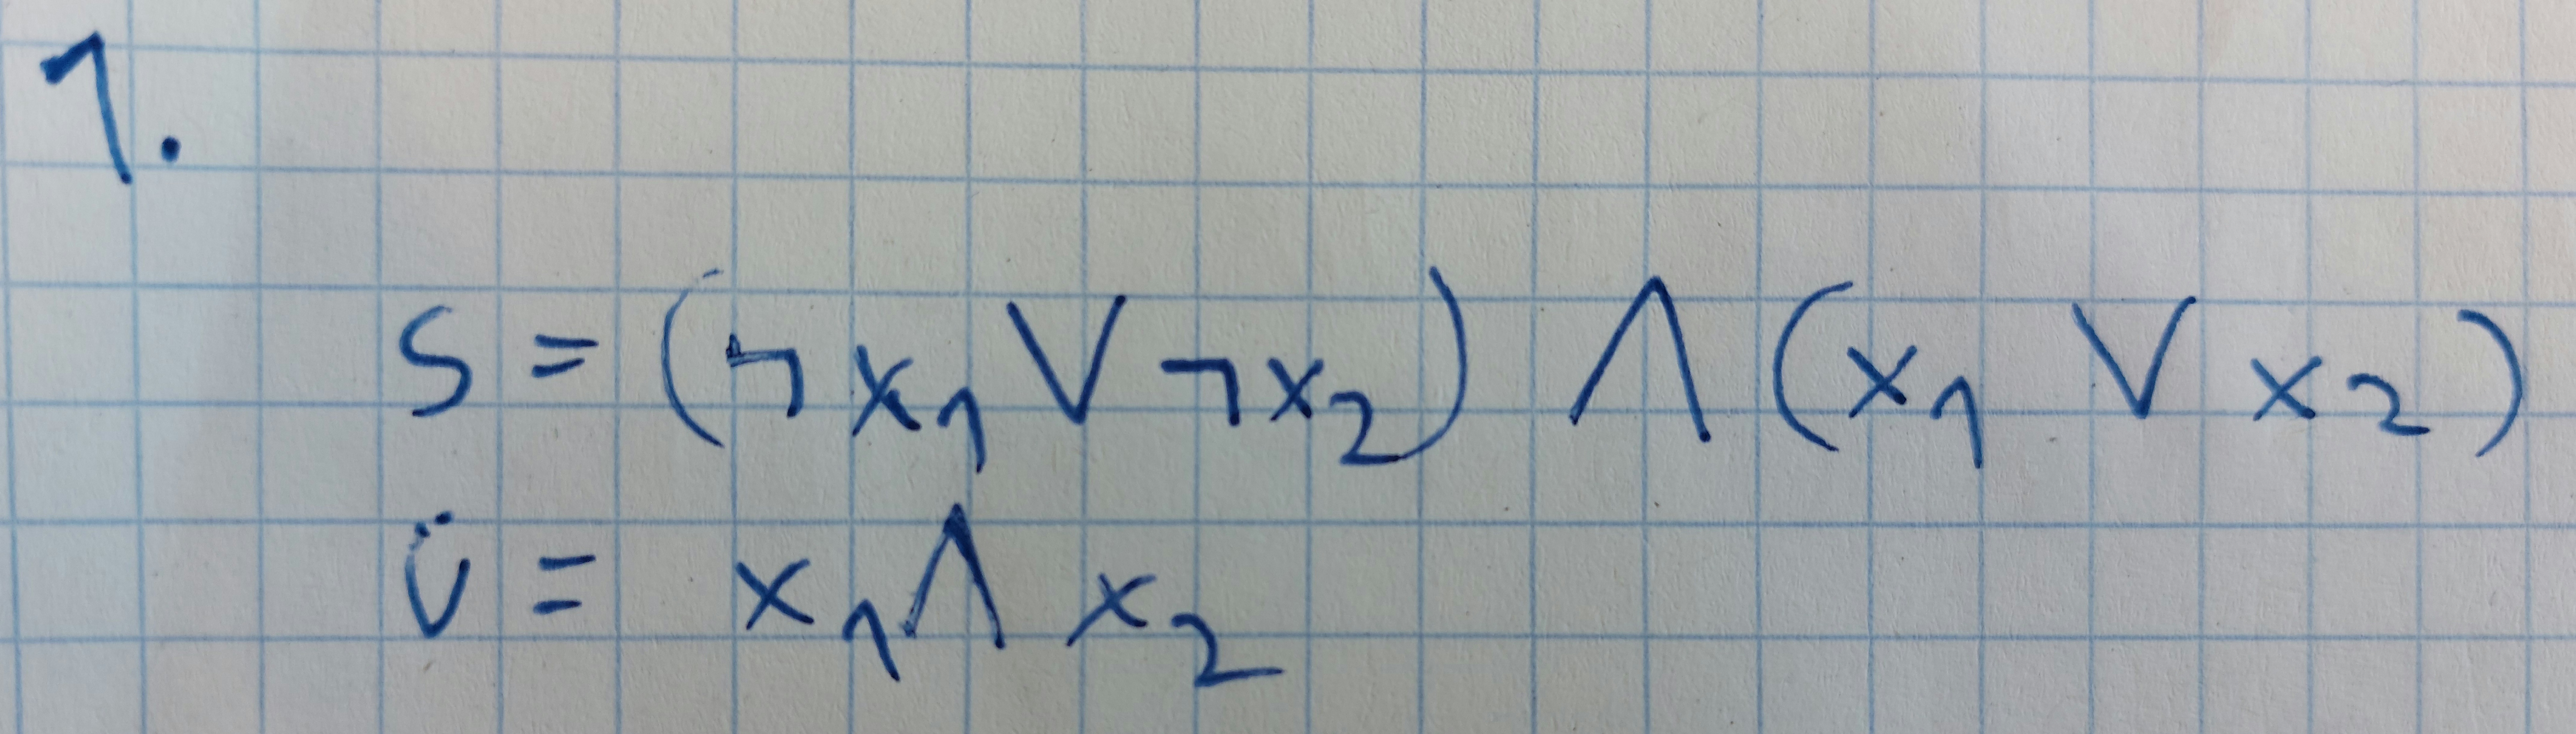 1.
S = (¬x₁ ∨ ¬x₂) ∧ (x₁ ∨ x₂)
ü = x₁ ∧ x₂